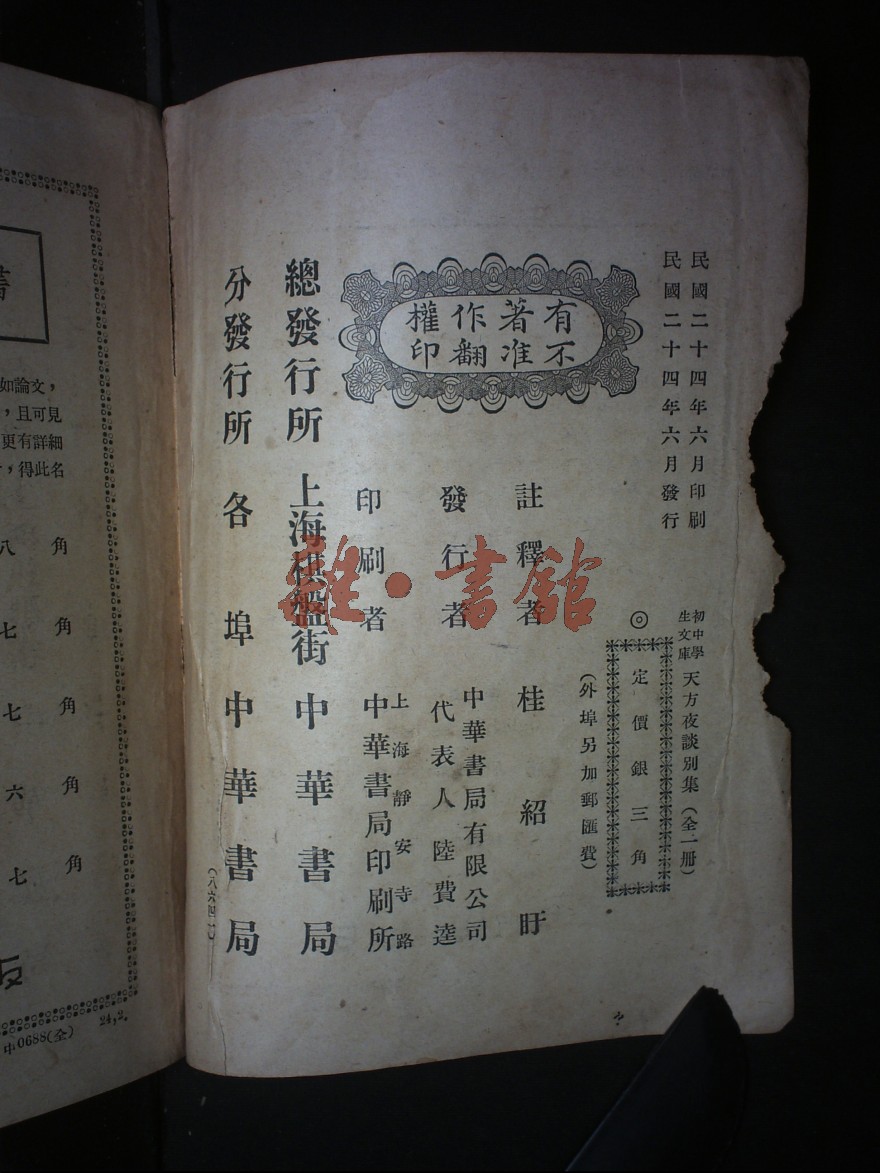 民國二十四年六月印刷
民國二十四年六月發行
初中學
生文庫
天方夜談別集（全一册）
◎
定價銀三角
（外埠另加郵匯費）
有著作權
不准翻印
註釋者 桂紹盱
發行者 中華書局有限公司
代表人 陸費逵
印刷者 上海靜安寺路
中華書局印刷所
總發行所 上海棋盤街 中華書局
分發行所 各埠中華書局
雜·書館
書
如論文，
，且可見
更有詳細
，得此名
八角
七角
七角
六角
七角
中0688(全)
24,2.